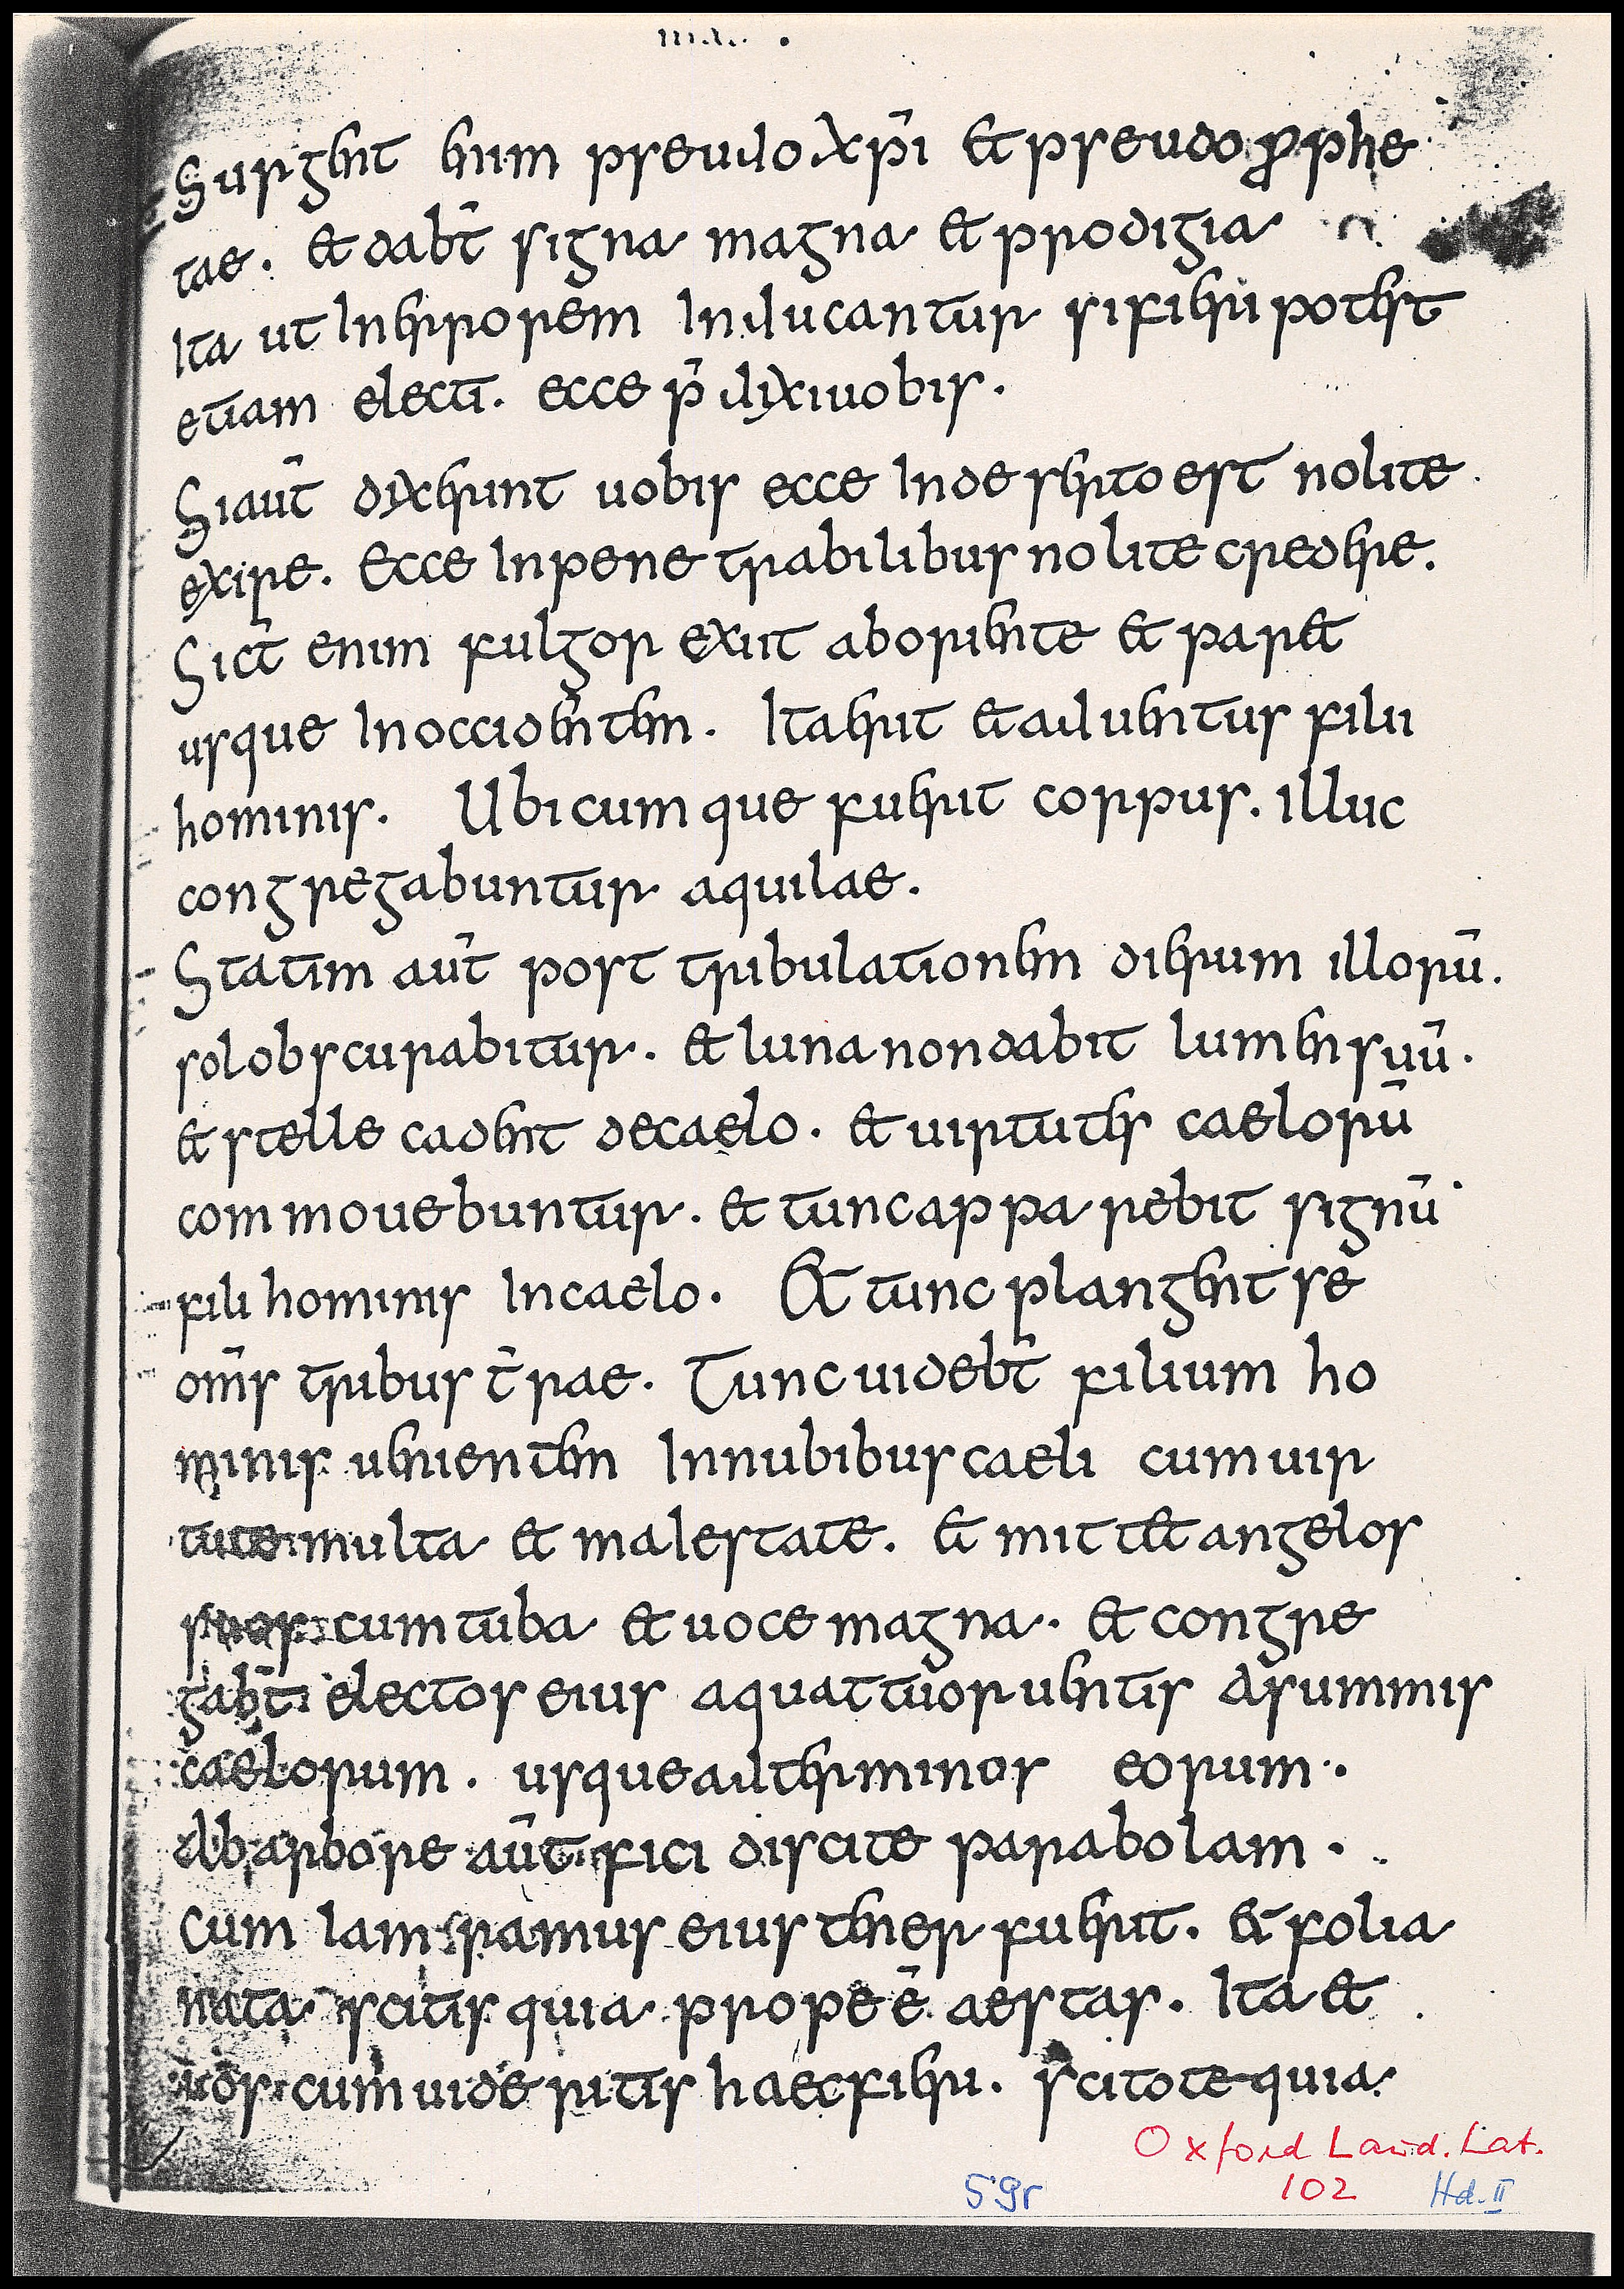 Surgent enim pseudo xp̄i et pseudo ꝓphe
tae. et dab̄t signa magna et prodigia
Ita ut In errorem Inducantur si fieri potest
etiam electi. ecce p̄dixi uobis.
Si aūt dixerunt uobis ecce In deserto est nolite
exire. Ecce In penetrabilibus nolite credere.
Sic̄t enim fulgor exiit ab oriente et paret
usque In occidentem. Ita erit et aduentus filii
hominis. Ubicumque fuerit corpus. illuc
congregabuntur aquilae.
Statim aūt post tribulationem dierum illorū.
sol obscurabitur. et luna non dabit lumen suū.
et stelle cadent de caelo. et uirtutes caelorū
commouebuntur. et tunc apparebit signū
fili hominis In caelo. Et tunc plangent se
om̄s tribus t̄rae. Tunc uideb̄t filium ho
minis uenientem In nubibus caeli cum uir
tute multa et maIestate. et mittet angelos
suos cum tuba et uoce magna. et congre
gab̄t electos eius a quattuor uentis a summis
caelorum. usque ad terminos eorum.
Ab arbore aūt fici discite parabolam.
Cum Iam ramus eius tener fuerit. et folia
nata scitis quia prope ē aestas. Ita et
uos cum uideritis haec fieri. scitote quia
Oxford Laud. Lat.
59r 102 Hd. II